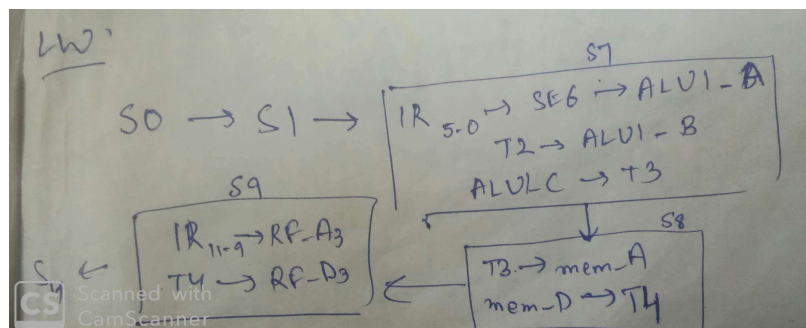 LW:
S7
S0 → S1 →
IR 5-0 → SE6 → ALU1-A
T2 → ALU1-B
ALU1C → T3
S8
T3 → mem_A
mem-D → T4
S9
IR 11-9 → RF-A3
T4 → RF-D3
CS Scanned with
CamScanner